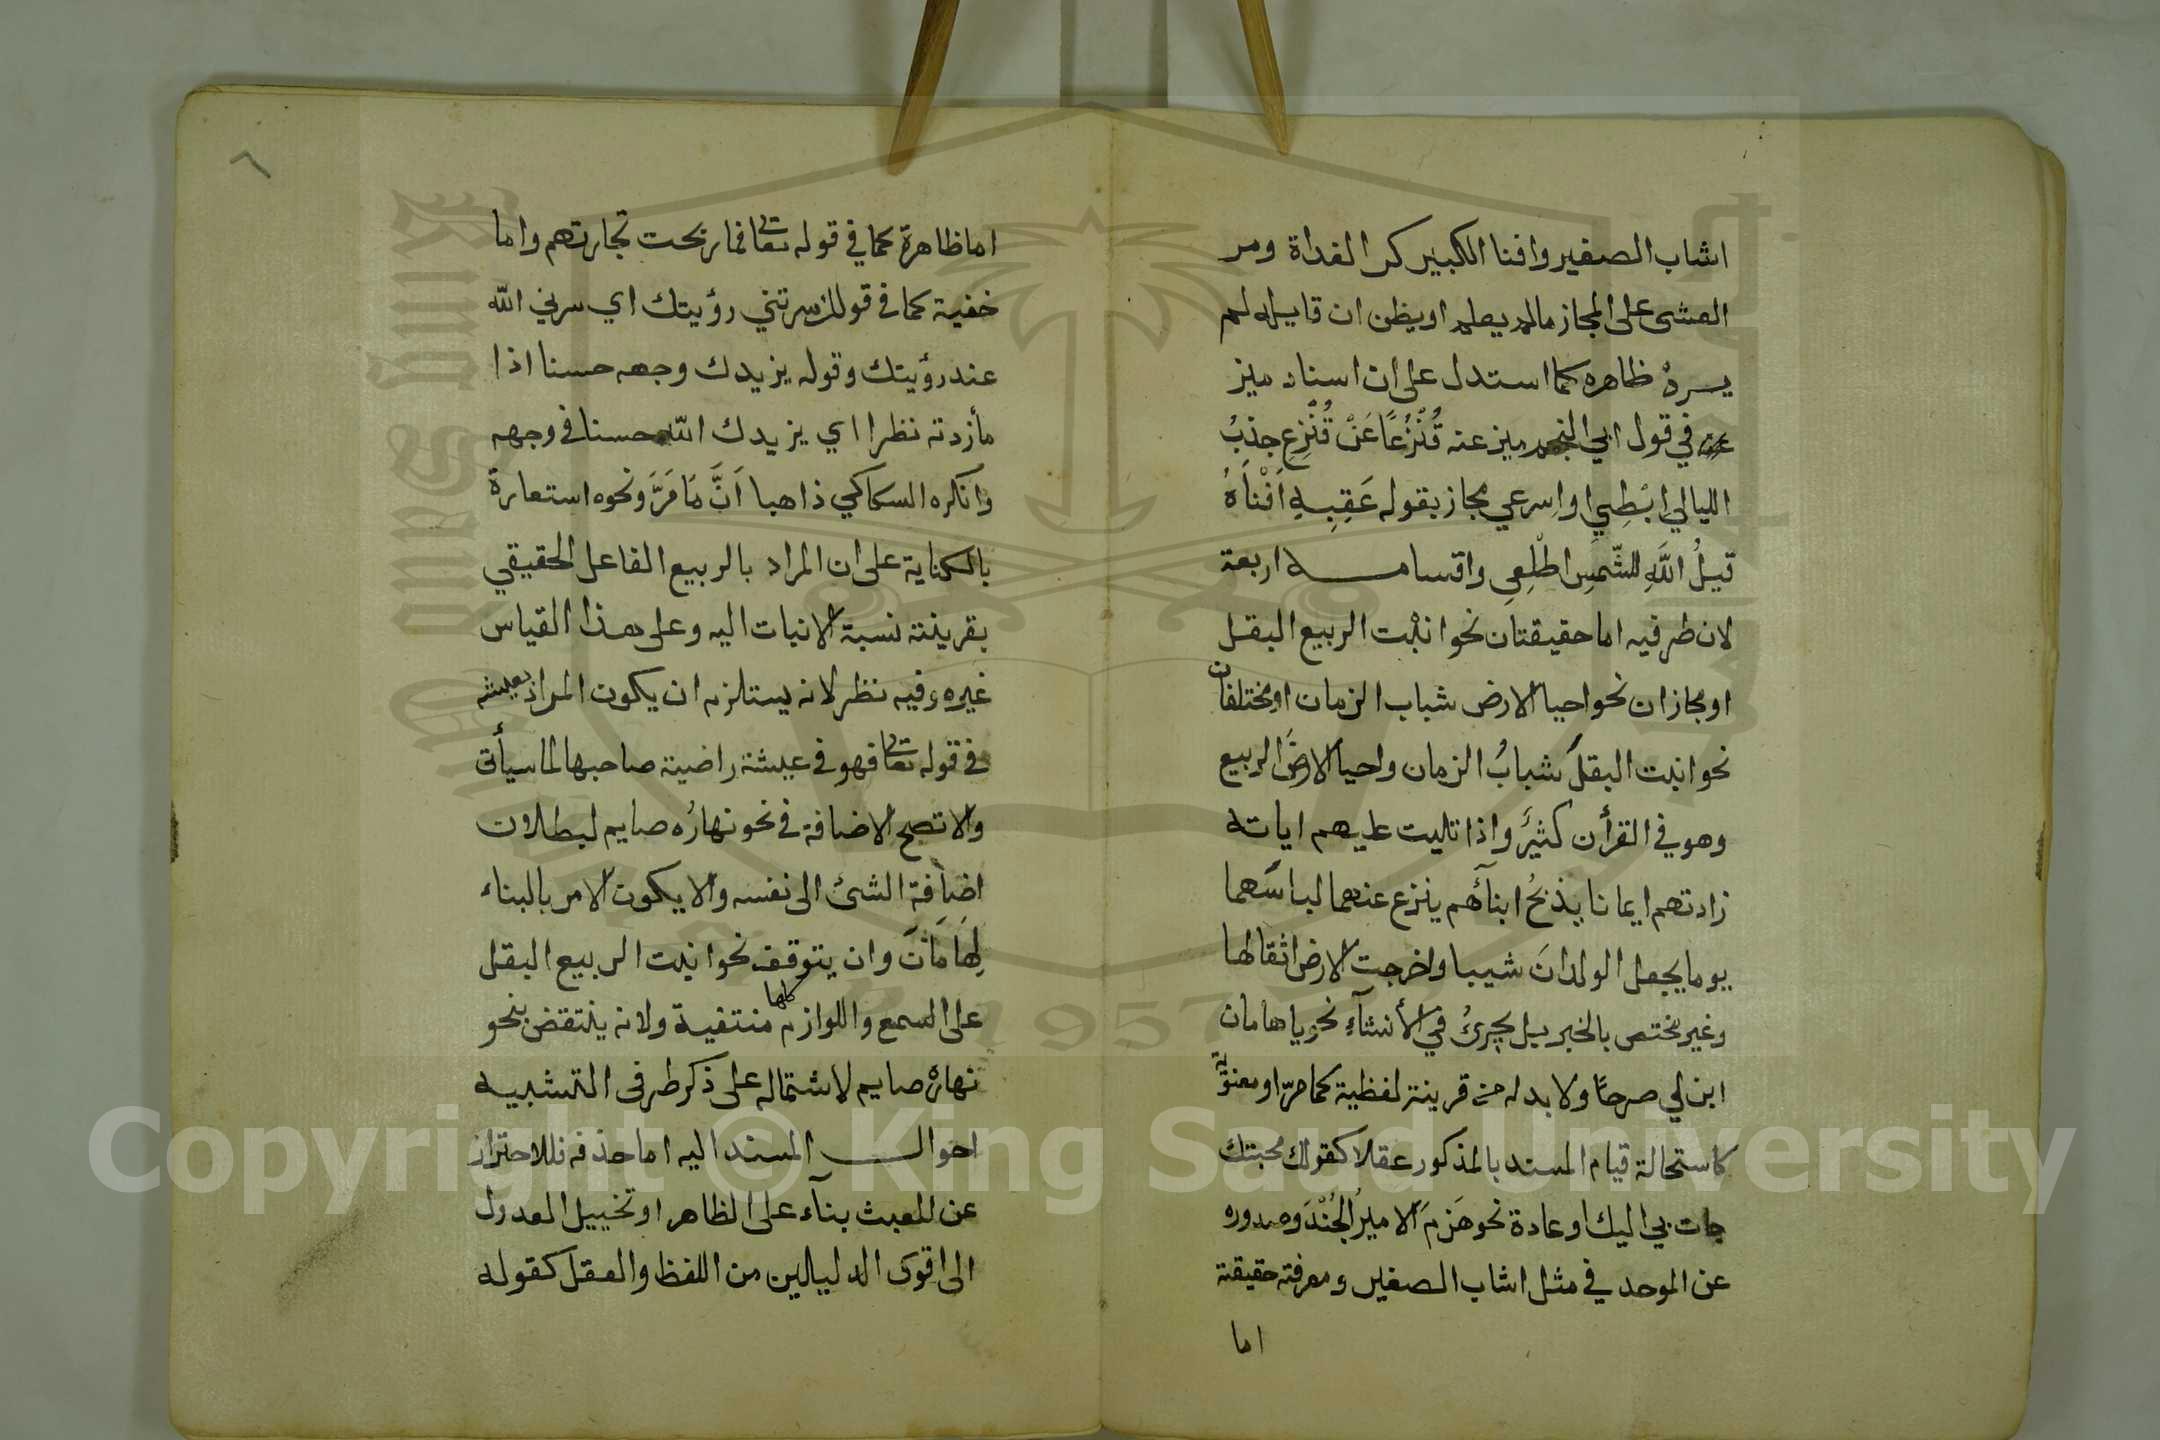 اشاب الصغير وافنا الكبير كر الغداة ومر
العشى على المجاز مالم يعلم او يظن ان قايله لم
يرد ظاهره كما استدل على ان اسناد ميز
في قول ابي النجم ميز عنه قُنْزُعًا عَنْ قُنْزِعِ جذبُ
الليالي ابْطِيي اواسرعي مجاز بقوله عَقِيبِهِ اَفْنَاَهُ
قيلُ اللّهِ للشّمسِ اطْلُعِي واقسامه اربعة
لان طرفيه اما حقيقتان نحو انبْت الربيع البقل
او مجازان نحو احيا الارض شباب الزمان او مختلفان
نحو انبت البقلَ شبابُ الزمان واحيا الارضَ الربيع
وهو في القرأن كثيرٌ واذا تليت عليهم اياته
زادتهم ايمانا يذبحُ ابنآئهم ينزع عنهما لباسَهما
يوما يجعل الولدانَ شيبا واخرجت الارض اثقالها
وغير مختص بالخبر بل يجرىُ في الأنشآءِ نحو ياهامان
ابن لي صرحًا ولا بد له من قرينة لفظية كما مرّ او معنوية
كاستحالة قيام المسند بالمذكور عقلا كقولك محبتك
جات بي اليك او عادة نحو هَزمَ الاميرُ الجُنْدَ وصدوره
عن الموحد في مثل اشاب الصغير ومعرفة حقيقته
اما
٦
اما ظاهرة كما في قوله تعالى فما ربحت تجارتهم واما
خفية كما في قولك سرتني رؤيتك اي سرني اللّه
عند رؤيتك وقوله يزيدك وجهه حسنا اذا
مأزدته نظرا اي يزيدك اللّه حسنا في وجهه
وانكره السكاكي ذاهبا اَنَّ مَا مَرَّ ونحوه استعارة
بالكناية على ان المراد بالربيع الفاعل الحقيقي
بقرينة نسبة الانبات اليه وعلى هذا القياس
غيره وفيه نظر لانه يستلزم ان يكون المراد بعيشه
في قوله تعالى فهو في عيشة راضية صاحبها لما سيأتى
والا تصح الاضافة في نحو نهارُه صايم لبطلان
اضافة الشئ الى نفسه والا يكون الامر بالبناء
لِهَامَانَ وان يتوقف نحو انبت الربيع البقل
على السمع واللوازم كلها منتفية ولانه ينتقض بنحو
نهاره صايم لاشتماله على ذكر طرفى التشبيه
احوال المسند اليه اما حذفه فللاحتراز
عن العبث بنآء على الظاهر او تخييل العدول
الى اقوى الدليلين من اللفظ والعقل كقوله
Copyright © King Saud University
1957